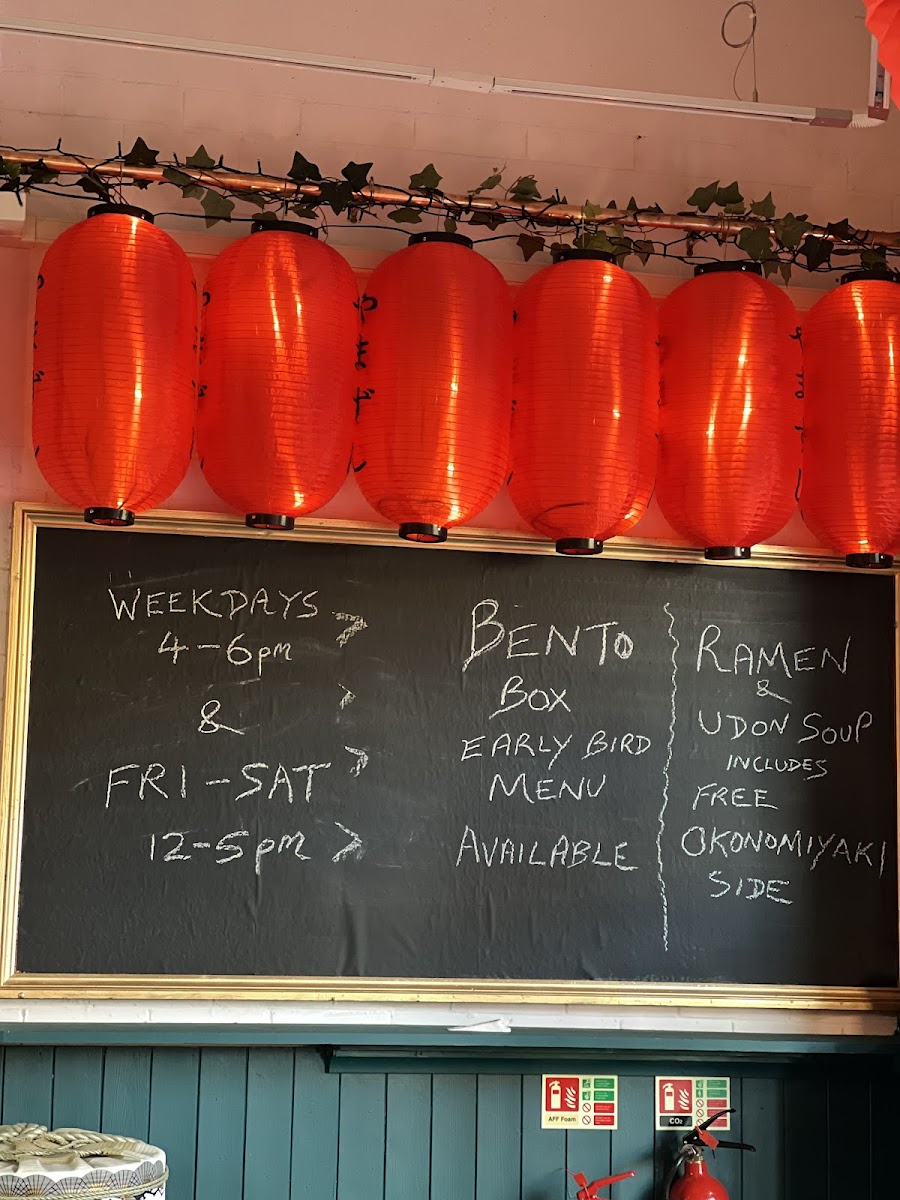 WEEKDAYS
4-6pm
&
FRI-SAT
12-5pm
BENTO
BOX
EARLY BIRD
MENU
AVAILABLE
RAMEN
&
UDON SOUP
INCLUDES
FREE
OKONOMIYAKI
SIDE
AFF Foam
CO₂